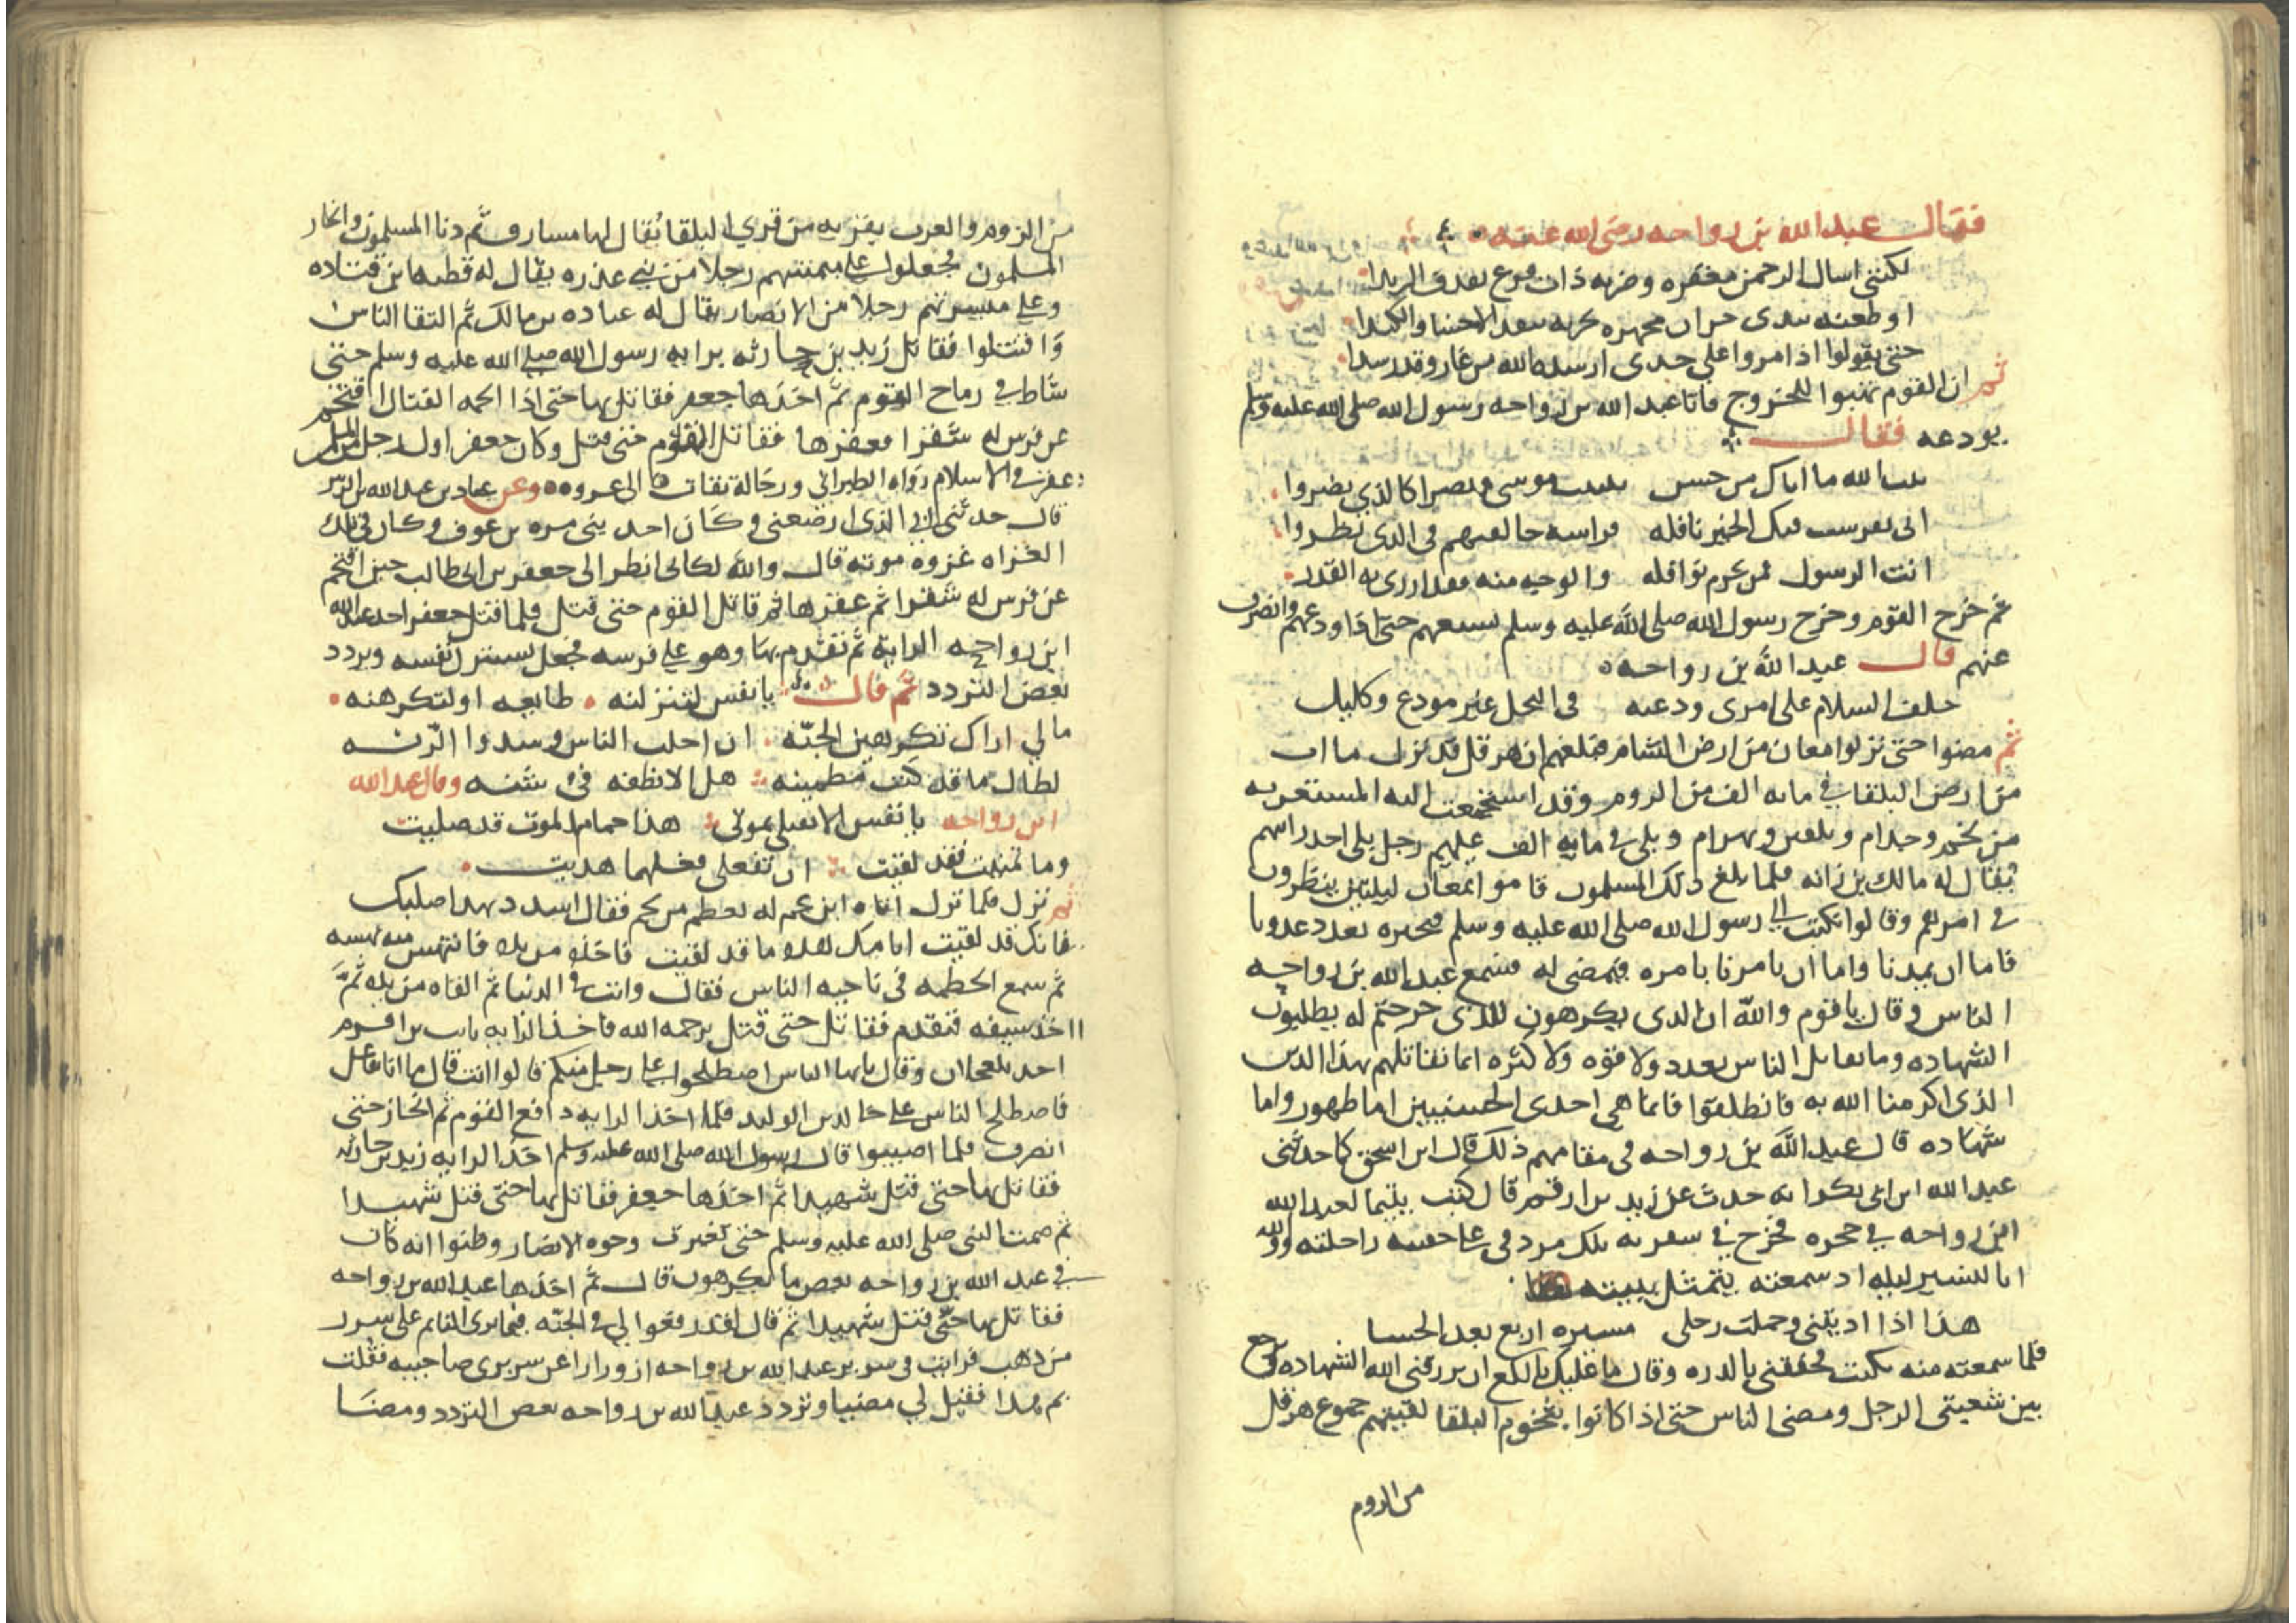 فقال عبد الله بن رواحه رضى الله عنه
لكننى اسال الرحمن مغفره وضربه ذات فرع تقذف الزبدا
او طعنه بيدى حران مجهزه بحربه تنفد الاحشا والكبدا
حتى يقولوا اذا مروا على جدى ارسده الله من غاز وقد رسدا
ثم ان القوم تهيوا للخروج فاتا عبد الله بن رواحه رسول الله صلى الله عليه وسلم
يودعه فقال
يثبت الله ما اتاك من حسن تثبيت موسى ونصرا كالذي نصروا
انى تفرست فيك الخير نافله فراسه خالفتهم فى الذى نظروا
انت الرسول فمن يحرم نوافله والوجه منه فقد ازرى به القدر
ثم خرج القوم وخرج رسول الله صلى الله عليه وسلم يشيعهم حتى اذا ودعهم وانصرف
عنهم قال عبد الله بن رواحه
خلف السلام على امرى ودعته فى النخل غير مودع وكليل
ثم مضوا حتى نزلوا معان من ارض الشام فبلغهم ان هرقل قد نزل ماب
من ارض البلقا فى مايه الف من الروم وقد اجتمعت اليه المستعربه
من لخم وجذام وبلقين وبهرام وبلى فى مايه الف عليهم رجل يلى احد راسهم
يقال له مالك بن زانه فلما بلغ ذلك المسلمون قاموا بمعان ليلتين ينظرون
فى امرهم وقالوا نكتب الى رسول الله صلى الله عليه وسلم فنخبره بعدد عدونا
فاما ان يمدنا واما ان يامرنا بامره فنمضى له فشجع عبد الله بن رواحه
الناس وقال يا قوم والله ان الذى تكرهون للذى خرجتم له تطلبون
الشهاده وما نقاتل الناس بعدد ولا قوه ولا كثره انما نقاتلهم بهذا الدين
الذى اكرمنا الله به فانطلقوا فانما هى احدى الحسنيين اما ظهور واما
شهاده قال عبد الله بن رواحه فى مقامهم ذلك قال ابن اسحق كما حدثنى
عبد الله ابن ابى بكر انه حدث عن زيد بن ارقم قال كنت يتيما لعبد الله
ابن رواحه فى حجره فخرج فى سفرته تلك مردفى على حقيبه راحلته ووالله
انا لنسير ليله اذ سمعته يتمثل ببيته هذا
هذا اذا اديتنى وحملت رحلى مسيره اربع بعد الحسا
فلما سمعته منه بكيت فخفقنى بالدره وقال ما عليك يا لكع ان يرزقنى الله الشهاده وترجع
بين شعبتى الرجل ومضى الناس حتى اذا كانوا بتخوم البلقا لقيتهم جموع هرقل
من الروم
من الروم والعرب بقريه من قري البلقا يُقال لها مسارف ثم دنا المسلمون وانحاز
المسلمون فجعلوا على ميمنتهم رجلا من بنى عذره يقال له قطبه ابن قتاده
وعلى ميسرتهم رجلا من الانصار يقال له عباده بن مالك ثم التقا الناس
وَاقتتلوا فقاتل زيد بن حارثه برايه رسول الله صلى الله عليه وسلم حتى
شاط في رماح القوم ثم اخذها جعفر فقاتل بها حتى اذا الحمه القتال اقتحم
عن فرس له شقرا فعقرها فقاتل القوم حتى قتل وكان جعفر اول رجل من المسلمين
عقر فى الاسلام رواه الطبراني ورجاله ثقات الى عروه وعن عباد بن عبد الله بن الزبير
قال حدثنى ابي الذى ارضعنى وكان احد بنى مره بن عوف وكان فى تلك
الغزاه غزوه موته قال والله لكانى انظر الى جعفر بن ابى طالب حين اقتحم
عن فرس له شقرا ثم عقرها ثم قاتل القوم حتى قتل فلما قتل جعفر اخذ عبد الله
ابن رواحه الرايه ثم تقدم بها وهو على فرسه فجعل يستنزل نفسه ويردد
بعض التردد ثم قال يا نفس لتنزلنه طايعه او لتكرهنه
مالي اراك تكرهين الجنّه ان اجلب الناس وشدوا الرّنه
لطال ما قد كنت مطمينه هل الا نطفه فى شنه وقال عبد الله
ابن رواحه يا نفس الا تقتلى تموتى هذا حمام الموت قد صليت
وما تمنيت فقد لقيت ان تفعلى فعلهما هديت
ثم نزل فلما نزل اتاه ابن عم له بعظم من لحم فقال اشدد بهذا صلبك
فانك قد لقيت ايامك هذه ما قد لقيت فاخذه من يده فانتهس منه نهسه
ثم سمع الحطمه فى ناحيه الناس فقال وانت فى الدنيا ثم القاه من يده ثم
اخذ سيفه فتقدم فقاتل حتى قتل يرحمه الله فاخذ الرايه ثابت بن اقرم
احد بلعجلان وقال يايها الناس اصطلحوا على رجل منكم قالوا انت قال ما انا بفاعل
فاصطلح الناس على خالد بن الوليد فلما اخذ الرايه دافع القوم ثم انحاز حتى
انصرف فلما اصيبوا قال رسول الله صلى الله عليه وسلم اخذ الرايه زيد بن حارثه
فقاتل بها حتى قتل شهيدا ثم اخذها جعفر فقاتل بها حتى قتل شهيدا
ثم صمت النبى صلى الله عليه وسلم حتى تغيرت وجوه الانصار وظنوا انه كان
في عبد الله بن رواحه بعض ما يكرهون قال ثم اخذها عبد الله بن رواحه
فقاتل بها حتى قتل شهيدا ثم قال لقد رفعوا لي فى الجنّه فيما يرى النايم على سرر
من ذهب فرايت فى سرير عبد الله بن رواحه ازورارا عن سريرى صاحبيه فقلت
بم هذا فقيل لي مضيا وتردد عبد الله بن رواحه بعض التردد ومضَا